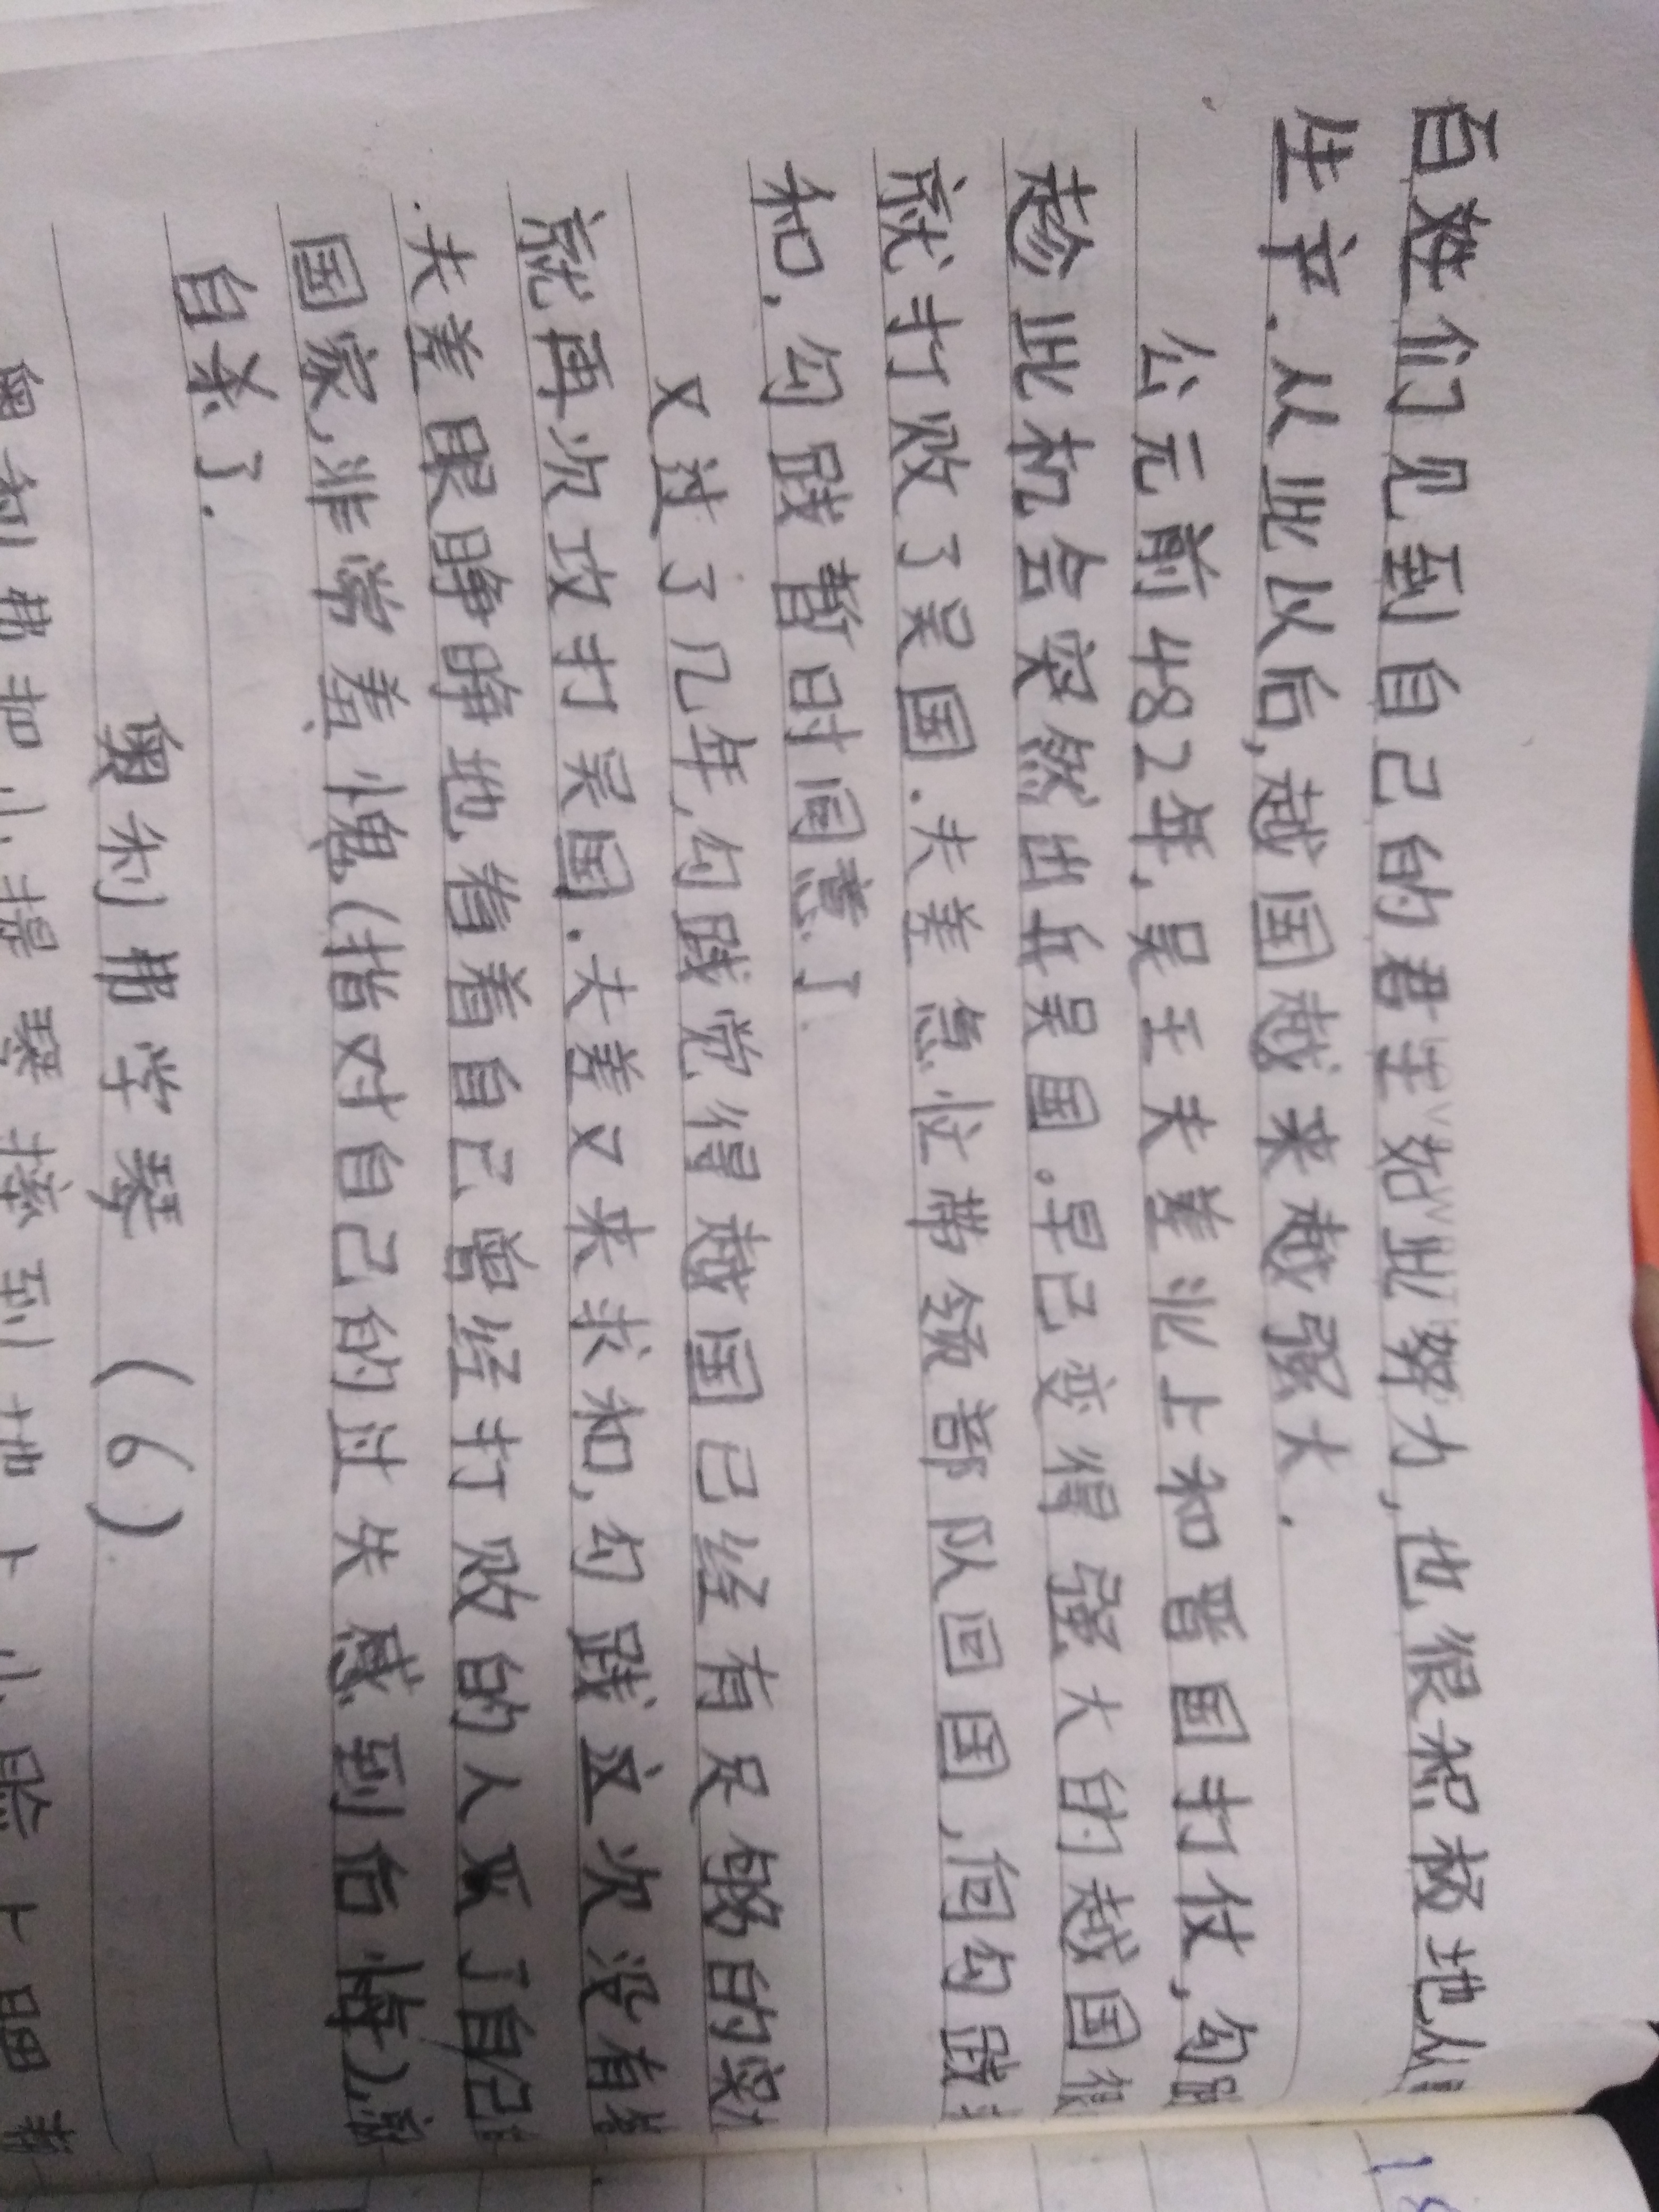 百姓们见到自己的君主如此努力,也很积极地从
生产.从此以后,越国越来越强大.
公元前482年,吴王夫差北上和晋国打仗,勾践
趁此机会突然出兵吴国.早已变得强大的越国很
就打败了吴国.夫差急忙带领部队回国,向勾践
和,勾践暂时同意了
又过了几年,勾践觉得越国已经有足够的实
就再次攻打吴国.夫差又来求和,勾践这次没有
夫差眼睁睁地看着自己曾经打败的人灭了自己
国家,非常羞愧(指对自己的过失感到后悔),
自杀了.
奥利弗学琴 (6)
奥利弗把小提琴摔到地上